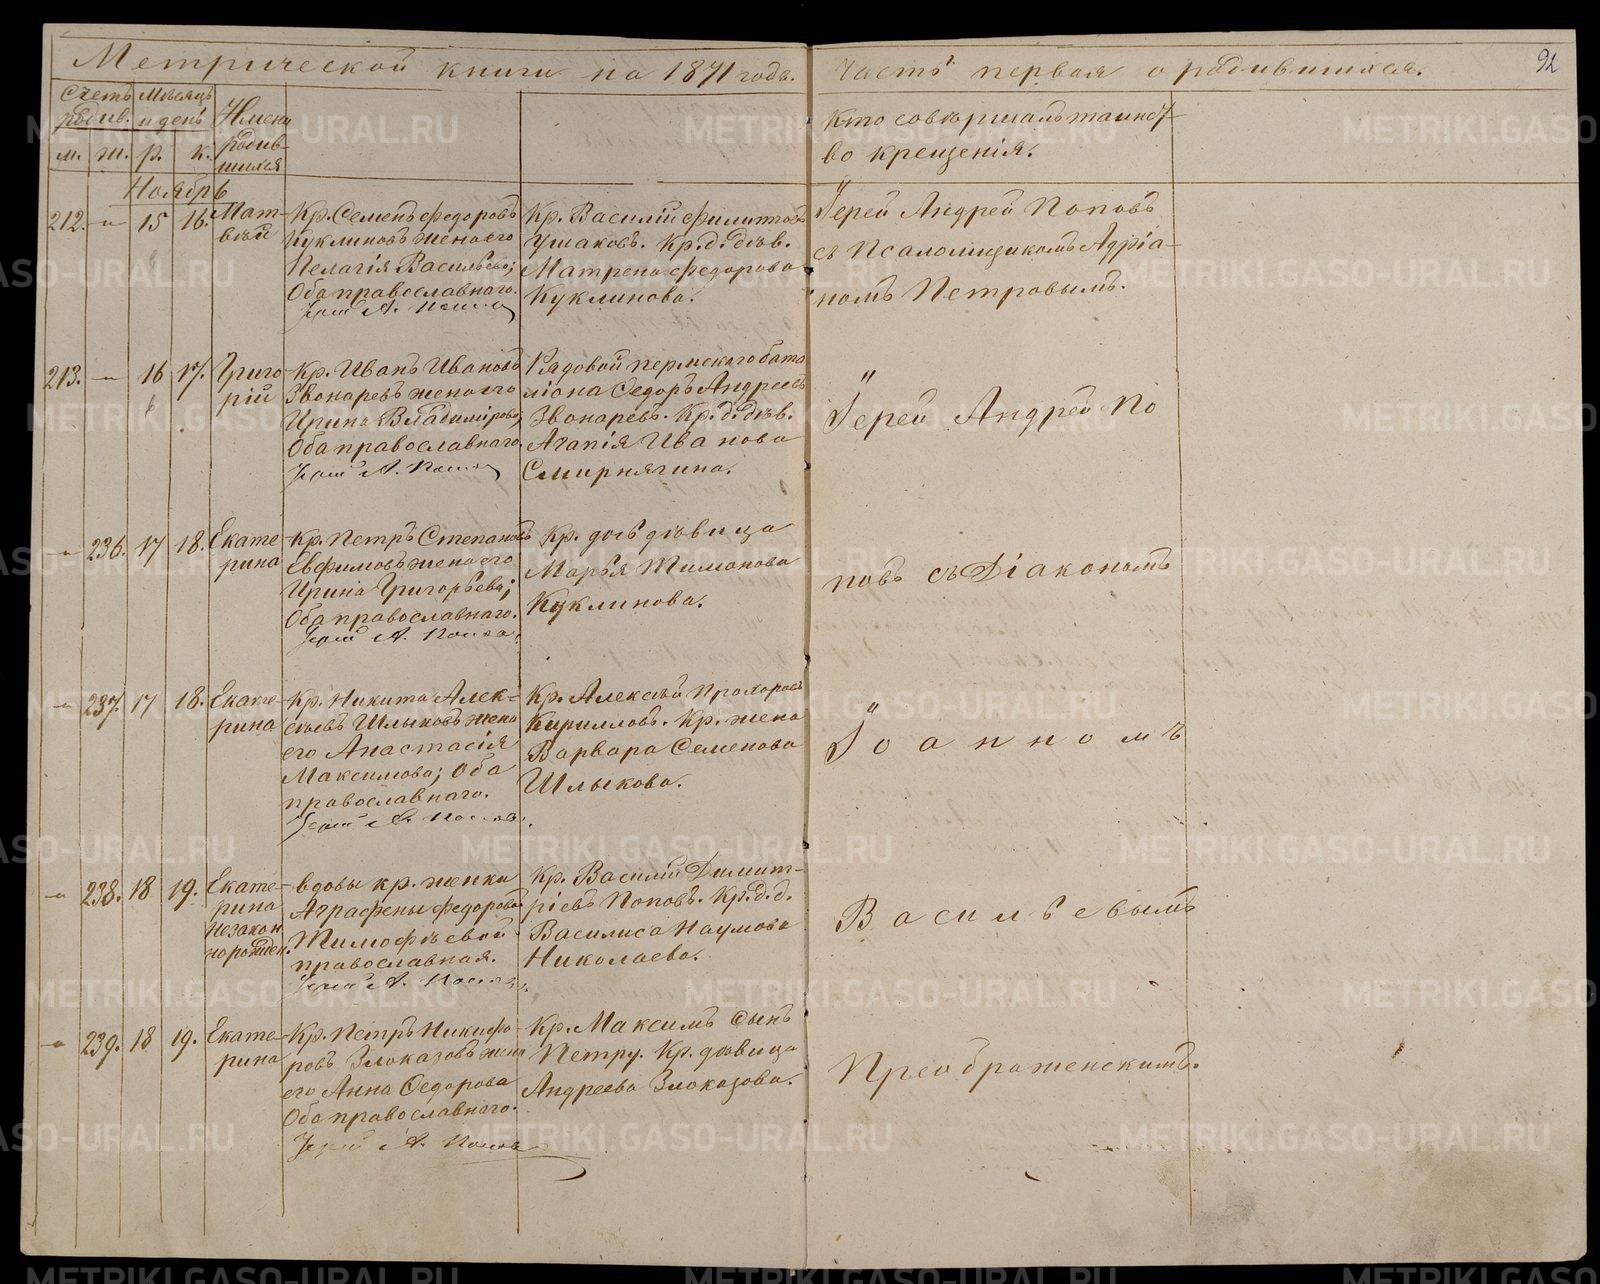 Метрической книги на 1871 годъ.
Часть первая о родившихся.
92
Счетъ родив.
Мѣсяцъ и день
Имена родив-
шихся
м. ж. р. к.
Кто совершалъ таинст-
во крещенія.
Ноябрь
212. — 15 16. Мат-
вѣй
Кр. Семенъ Федоровъ
Куклиновъ жена его
Пелагія Васильева;
Оба православнаго.
Іерей А. Поповъ
Кр. Василій Филиповъ
Ушаковъ. Кр. д. дѣв.
Матрена Федорова
Куклинова.
Іерей Андрей Поповъ
съ Псаломщикомъ Адріа-
номъ Петровымъ.
213. — 16 17. Григо
рій
Кр. Иванъ Ивановъ
Звонаревъ жена его
Ирина Владимірова,
Оба православнаго.
Іерей А. Поповъ
Рядовой пермскаго бата
ліона Ѳедоръ Андреевъ
Звонаревъ. Кр. д. дѣв.
Агапія Иванова
Смирнягина.
Іерей Андрей По
— 236. 17 18. Екате
рина
Кр. Петръ Степановъ
Евфимовъ жена его
Ирина Григорьева;
Оба православнаго.
Іерей А. Поповъ
Кр. дочь дѣвица
Марья Тиманова
Куклинова.
повъ съ Діакономъ
— 237. 17 18. Екате
рина
Кр. Никита Алек-
сѣевъ Шлыковъ жена
его Анастасія
Максимова; Оба
православнаго.
Іерей А. Поповъ
Кр. Алексѣй Прохоровъ
Кирилловъ. Кр. жена
Варвара Семенова
Шлыкова.
Іоанномъ
— 238. 18 19. Екате-
рина
незакон
норожден.
вдовы кр. женки
Аграфены Федоровой
Тимофѣевой
православная.
Іерей А. Поповъ
Кр. Василій Димит-
ріевъ Поповъ. Кр. д. д.
Василиса Наумова
Николаева.
Васильевымъ
— 239. 18 19. Екате
рина
Кр. Петръ Никифо
ровъ Злоказовъ жена
его Анна Ѳедорова
Оба православнаго.
Іерей А. Поповъ
Кр. Максимъ сынъ
Петру. Кр. дѣвица
Андреева Злоказова.
Преображенскимъ.
METRIKI.GASO-URAL.RU